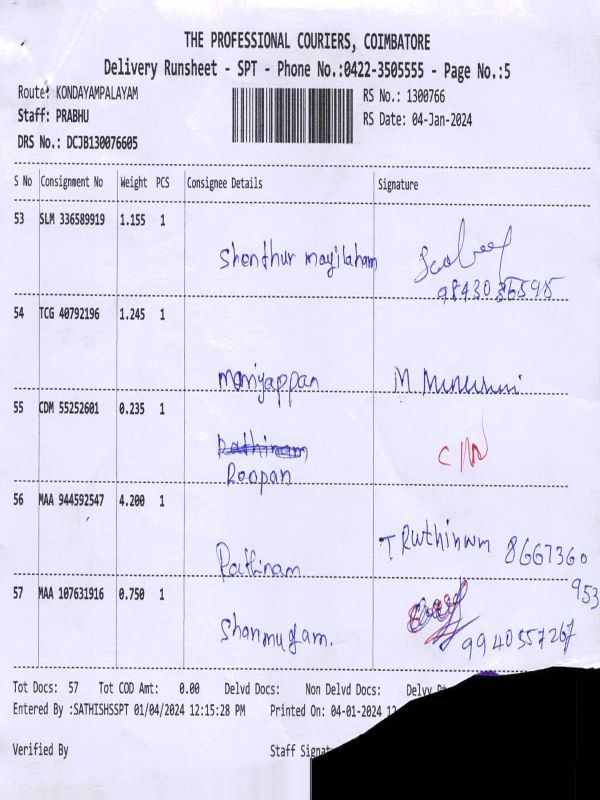 THE PROFESSIONAL COURIERS, COIMBATORE
Delivery Runsheet - SPT - Phone No.:0422-3505555 - Page No.:5
Route: KONDAYAMPALAYAM RS No.: 1300766
Staff: PRABHU RS Date: 04-Jan-2024
DRS No.: DCJB130076605
S No Consignment No Weight PCS Consignee Details Signature
53 SLM 336589919 1.155 1
Shenthur mayilaham
9843036595
54 TCG 40792196 1.245 1
Moniyappan M
55 CDM 55252601 0.235 1
Pathinam
Roopan
56 MAA 944592547 4.200 1
T Ruthinam 8667360
Rathinam 953
57 MAA 107631916 0.750 1
Shanmugam. 9940557267
Tot Docs: 57 Tot COD Amt: 0.00 Delvd Docs: Non Delvd Docs:
Entered By :SATHISHSSPT 01/04/2024 12:15:28 PM Printed On: 04-01-2024 12
Verified By Staff